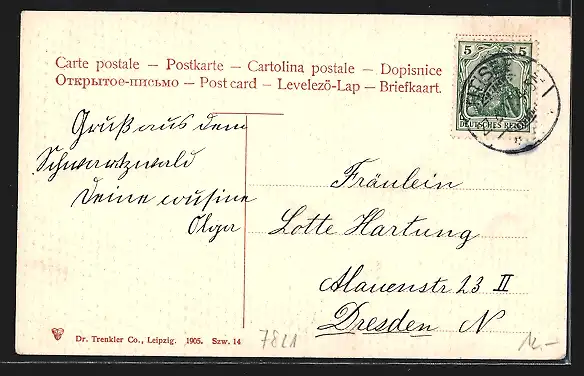 Carte postale – Postkarte – Cartolina postale – Dopisnice
Открытое-письмо – Post card – Levelező-Lap – Briefkaart.
5 5
DEUTSCHES REICH
Gruß aus dem
Schwartzwald
Deine cousine
Olga
Fräulein
Lotte Hartung
Alauenstr 23 II
Dresden N
Dr. Trenkler Co., Leipzig. 1905. Szw. 14
7821
12.–